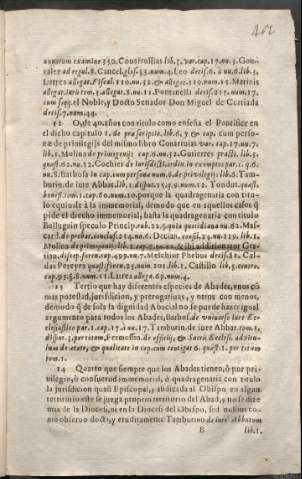 402
nonorum examine 350. Couarruuias lib. 3. var. cap. 17. nu. 3. Gon-
zalez ad regul. 8. Cancel. glos. 53. num. 4. Leo decis. 6. à nu. 6. lib. 3.
Larrea allegat. Fiscal. 110. nu. 32. & allegat. 119. num. 15. Matinis
allegat. Iuris tom. 3. allegat. 3. nu. 11. Fontanella decis. 21. num. 17.
cum seqq. el Noble, y Docto Senador Don Miguel de Cortiada
decis. 7. num. 44.
12 O de 40. años con titulo como enseña el Pontifice en
el dicho capitulo 1. de præscriptis, lib. 6. y & cap. cum perso-
næ de priuilegijs del mismo libro Couarruias var. cap. 17. nu. 7.
lib. 1. Molina de primogenijs cap. 6. nu. 32. Gutierrez pract. lib. 3.
quæst. nu. 12. Cochier de iurisdict.
nu. 8. Barbosa in cap. cum persona num. 6. de priuilegijs lib. 6. Tam-
burin. de iure Abbat. lib. 1. disput. 15. num. 12. Tondut. quæst.
benefic. tom. 1. cap. 60. num. 10. porque la quadragenaria con titu-
lo equiuale à la immemorial, demodo que en aquellos casos q̃
pide el drecho immemorial, basta la quadragenaria con titulo
nu. 51. Mas-
card. de probat. nu. 6. Decian. consil. 23. nu. 139. lib. 1.
Molina de primogenijs lib. 2. cap. & ibi additionator Gra-
tian. discep. foren. cap. 499. nu. 7. Melchior Phebus decis. Cal-
das Pereyra quæst. foren. 25. num. 201. lib. 1. Castillo lib. 5. controu.
cap. 93. §. 8. num. 11. Larrea alleg. 69. num. 4.
13 Tertio que hay diferentes especies de Abades, vnos cõ
mas potestad, jurisdiccion, y prerogatiuas, y otros con menos,
demodo q̃ de sola la dignidad Abacial no se puede hazer igual
argumento para todos los Abades, Barbos. de vniuerso iure Ec-
clesiastico par. 1. cap. 17. à nu. 17. Tamburin. de iure Abbat. tom. 1.
disput. 3. per totam, Fermosin. de officijs, & Sacris Ecclesiæ, ad titu-
lum de ætate, & qualitate in cap. cum teneatur 6. quæst. 1. per totam
tom. 1.
14 Quarto que siempre que los Abades tienen, ò por pri-
uilegio, ò consuetud immemorial, ò quadragenaria con titulo
la jurisdiccion quasi Episcopal, abdicada al Obispo en algun
territorio este se juzga proprio territorio del Abad, y no se dize
mas de la Diocesi, ni en la Diocesi del Obispo, sed nullius co-
mo obseruo docta, y eruditamente Tamburino de iure Abbatum
B lib. 1.